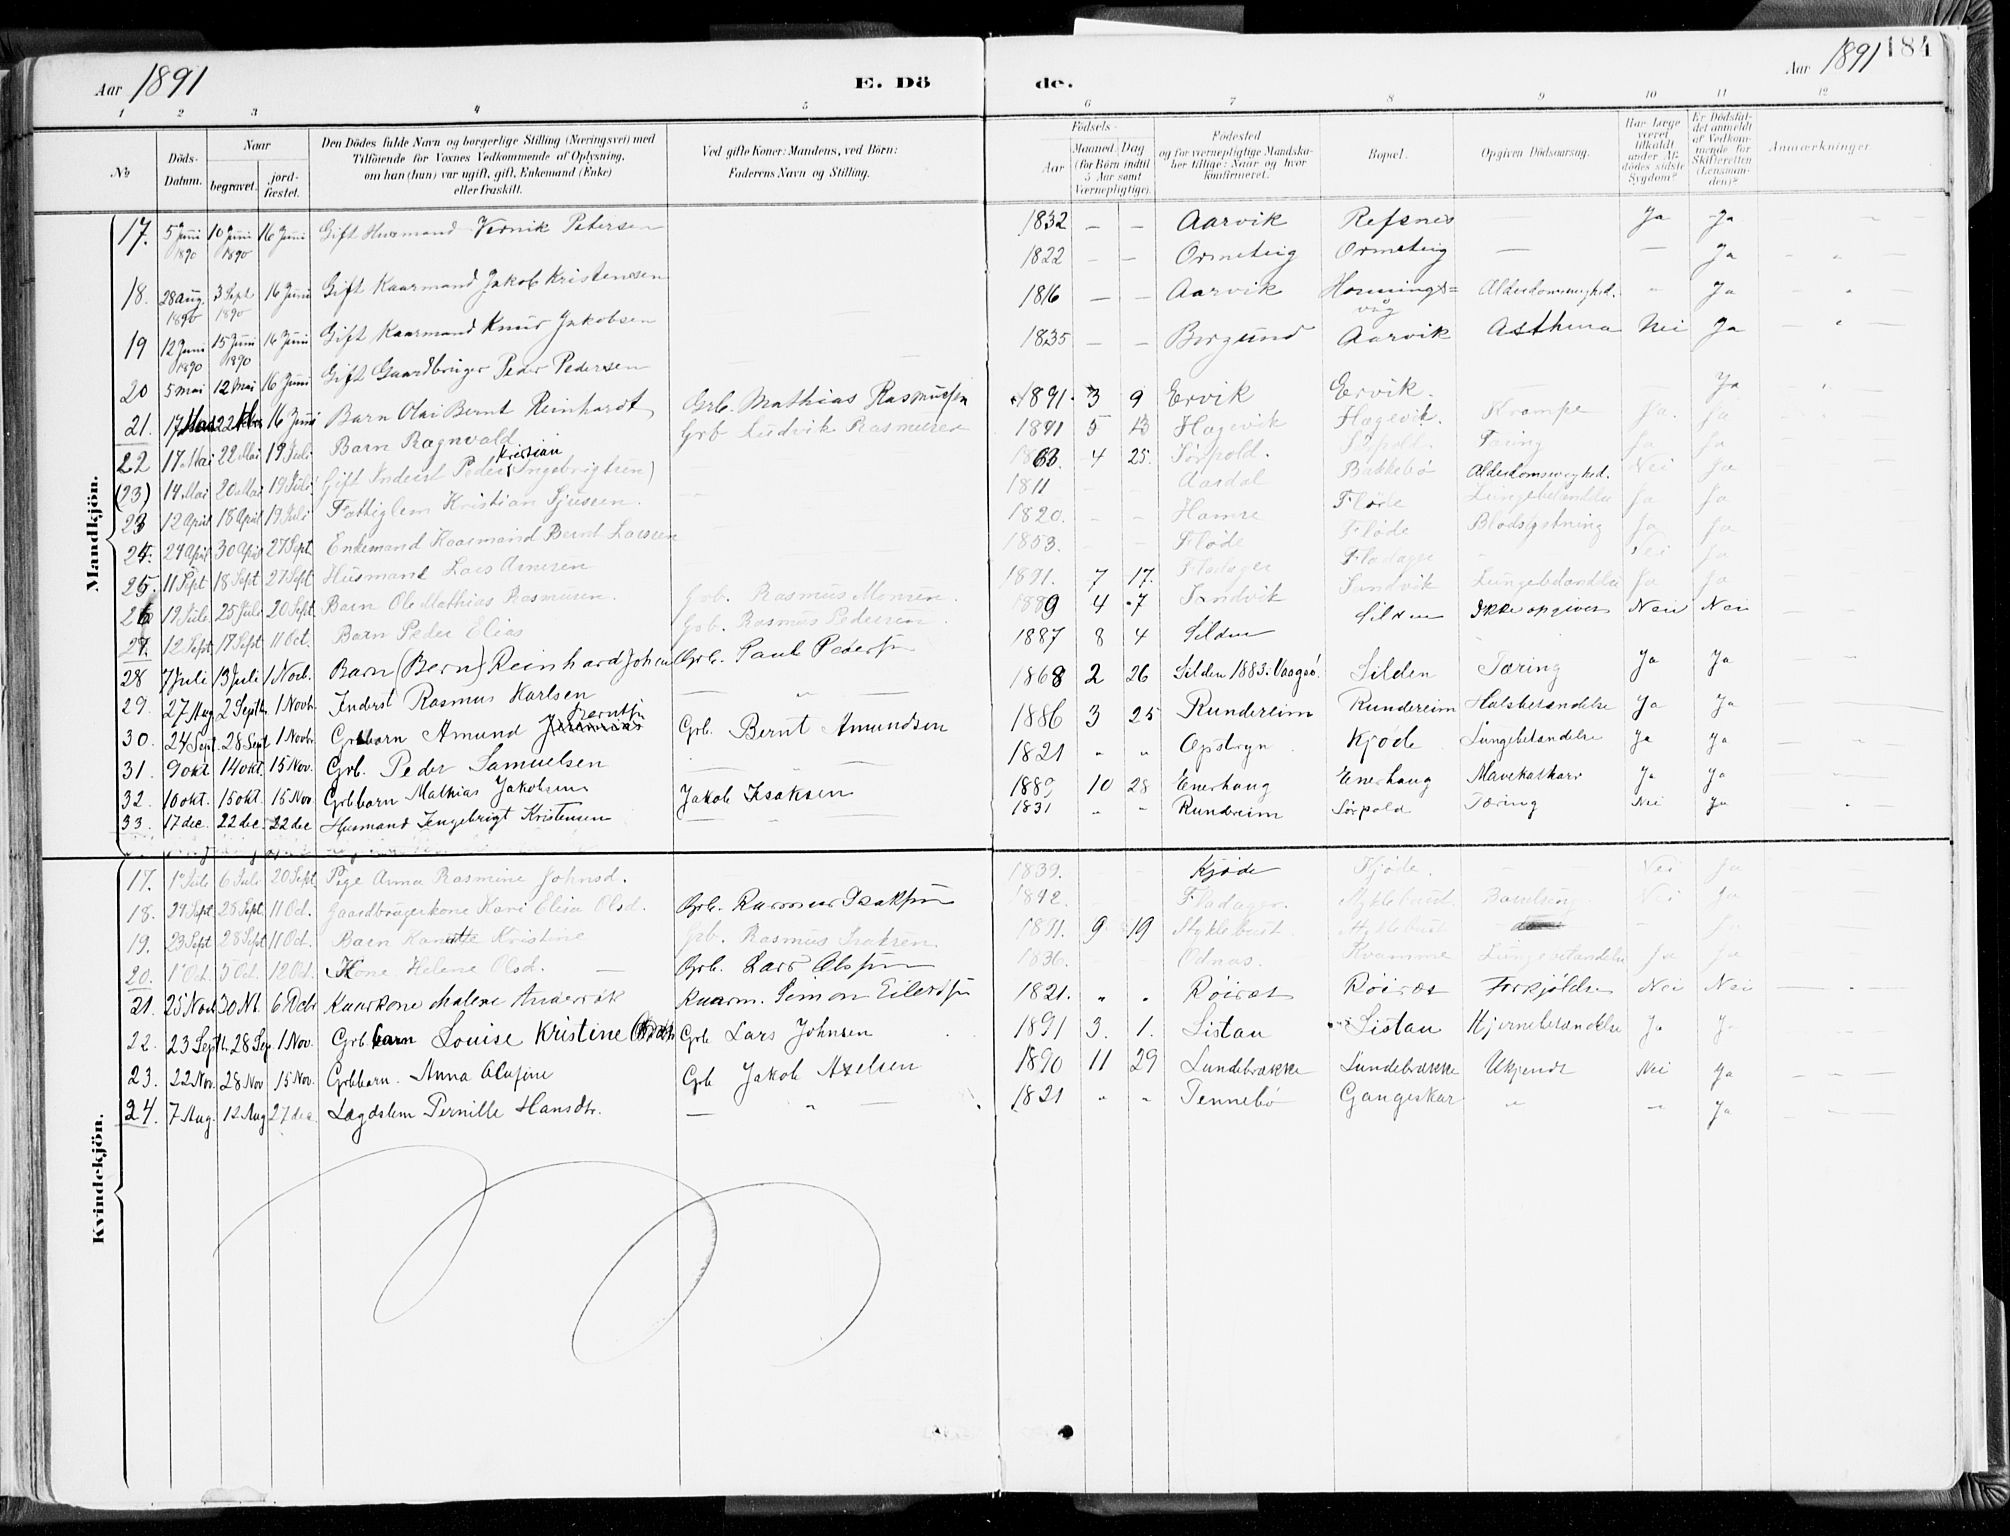 Aar 1891
E. Dö
de.
Aar 1891
184
1 2 3 4 5 6 7 8 9 10 11 12
No
Döds-Datum.
Naar
begravet.
jord-fæstet.
Den Dödes fulde Navn og borgerlige Stilling (Næringsvei) med
Tilföiende for Voxnes Vedkommende af Oplysning,
om han (hun) var ugift, gift, Enkemand (Enke)
eller fraskilt.
Ved gifte Koner: Mandens, ved Börn:
Faderens Navn og Stilling.
Födsels-
Aar
Maaned. Dag
(for Börn indtil
5 Aar samt
Værnepligtige).
Födested
og for værnepligtige Mandska-
ber tillige: Naar og hvor
konfirmeret.
Bopæl.
Opgiven Dödsaarsag.
Har Læge
været
tilkaldt
under Af-
dödes sidste
Sygdom?
Er Dödsfal-
det anmeldt
af Vedkom-
mende for
Skifteretten
(Lensman-
den)?
Anmærkninger
Mandkjön.
17. 5 Juni 1890 10 Juni 1890 16 Juni Gift Husmand Petersen 1832 — — Aarvik Refsnes Ja Ja
18. 28 Aug. 1890 3 Sept 1890 16 Juni Gift Kaarmand Jakob Kristensen 1822 — — Ormeteig Ormeteig — — Ja
19 12 Juni 1890 15 Juni 1890 16 Juni Gift Kaarmand Knud Jakobsen 1816 — — Aarvik Honnings=våg Alderdomssvaghed. " Ja
20 5 Mai 12 Mai 16 Juni Gift Gaardbruger Peder Pedersen 1835 — — Borgund Aarvik Asthma Nei Ja
21. 17 22 16 Juni Barn Olai Bernt Reinhardt Grb. Mathias Rasmussen 1891. 3 9 Ervik Ervik. — — Ja
22 17 Mai 22 Mai 19 Juli Barn Ragnvald Grb Ludvik Rasmussen 1891 5 13 Hagevik Hagevik. Krampe Ja Ja
(23) 14 Mai 20 Mai 19 Juli Gift Inderst Peder Kristian Ingebrigtsen) 1863. 4 25. Sørpold. Tæring Ja Ja
23 12 April 18 April 19 Juli Fattiglem Kristian 1811 - - Aardal Bakkebø Alderdomssvaghed. Nei Ja
24. 24 April 30 April 27 Sept. Enkemand Kaarmand Bernt Larsen 1820. - - Hamre Fløde Lungebetændelse Ja Ja
25. 11 Sept 18 Sept 27 Sept Husmand Lars Arnesen 1853. - - Fløde Fløde Blodstyrtning Ja Ja
26 19 Juli 25 Juli 20 Sept. Barn Ole Mathias Rasmussen. Grb. Rasmus Monsen. 1891. 7 17. Fladager Fladager Nei Ja
27. 12 Sept. 17 Sept 11 Oct. Barn Peder Elias Grb. Rasmus Pedersen. 1889 4 7 Sandvik Sandvik Lungebetændelse Ja Ja
28 7 Juli 13 Juli 1 Novb. Barn (Bern) Reinhard Johan Grb. Paul Pedersen 1887 8 4 Silden Silden Ikke opgiven Nei Nei
29. 27 Aug 2 Septb. 1 Novb. Inderst Rasmus Karlsen — " — 1868 2 26 Silden 1883. Vaagsö. Silden Tæring Ja Ja
30. 24 Sept. 28 Sept 1 Novbr. Grbbarn Amund Berntsen Grb. Bernt Amundsen 1886 3 25 Rundereim Rundereim Halsbetændelse Ja Ja
31. 9 okt 14 okt. 15 Nov. Grb. Peder Samuelsen — " — 1821 " " Opstryn Kjöde Lungebetændelse Ja Ja
32. 10 okt. 15 okt. 15 Nov Grbbarn Mathias Jakobsen Jakob Isaksen 1889 10 28 Enerhaug Enerhaug Mavekatharr Ja Ja
33. 17 dec. 22 dec. 22 dec Husmand Ingebrigt Kristensen — " — 1831 " " Rundreim Sørpold Tæring Nei Ja
Kvindekjön.
17. 1 Juli 6 Juli 20 Sept. Pige Anna Rasmine Johnsd. 1839. - - Kjøde Kjøde. Nei Ja
18. 24 Sept. 28 Sept. 11 Oct. Gaardbrugerkone Kari Elisa Olsd. Grb. Rasmus Isaksen 1842. Fladager. Myklebust Barselseng Nei Ja
19. 23 Sept 28 Sept 11 Oct. Barn Kristine Grb. Rasmus Isaksen. 1891. 9 19 Myklebust. Myklebust - Ja
20. 1 Oct. 5 Oct. 12 Oct. Kone Helene Olsd. — Grb. Lars Olsen 1836. - - Odnæs. Kvamme Lungebetændelse Ja Ja
21. 25 Novb 30 Nb. 6 Decbr Kaarkone Malene Andersdt Kaarm. Simon Eilertsen 1821. " " Röisæt Röisæt Forkjölelse Nei Nei
22. 23 Sept. 28 Sep. 1 Nov. Grb.barn Louise Kristine Grb Lars Johnsen 1891 3. 1. Listau Listau Hjernebetændelse Ja Ja
23. 22 Nov. 28 Nov 15 Nov. Grbbarn. Anna Olufine Grb Jakob Axelsen 1890 11 29 Lundebrække Lundebrække Ukjendt Nei Ja
24. 7 Aug. 12 Aug 27 dec Lægdslem Pernille Hansdtr. — " — 1821 " " Tennebö Gangeskar " " Ja